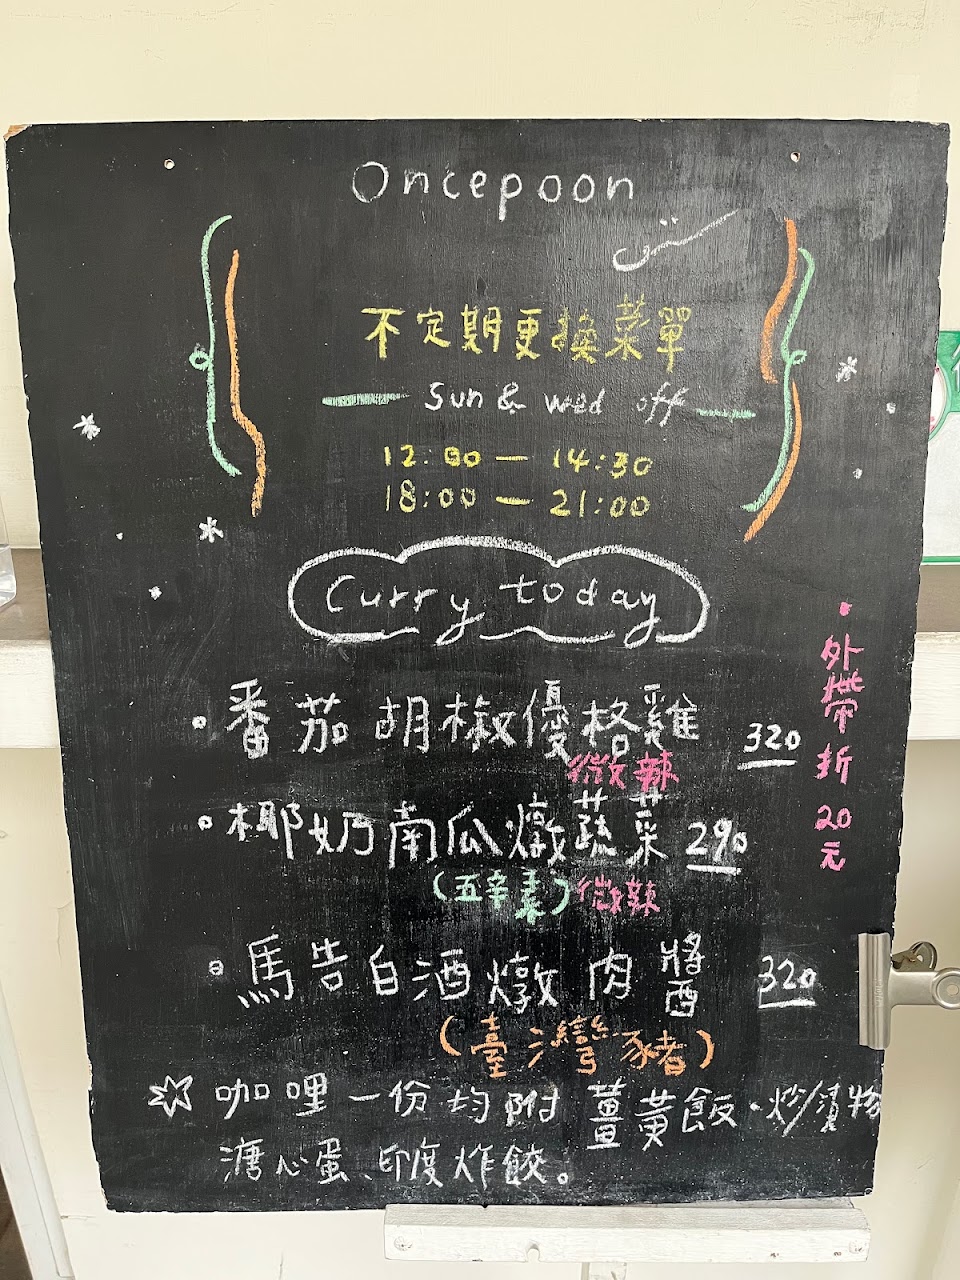 Oncepoon
不定期更換菜單
Sun & wed off
12:00 — 14:30
18:00 — 21:00
Curry today
番茄胡椒優格雞 320
微辣
椰奶南瓜燉蔬菜 290
(五辛素) 微辣
馬告白酒燉肉醬 320
(臺灣豬)
☆咖哩一份均附薑黃飯、炒漬物
溏心蛋、印度炸餃。
• 外帶折20元